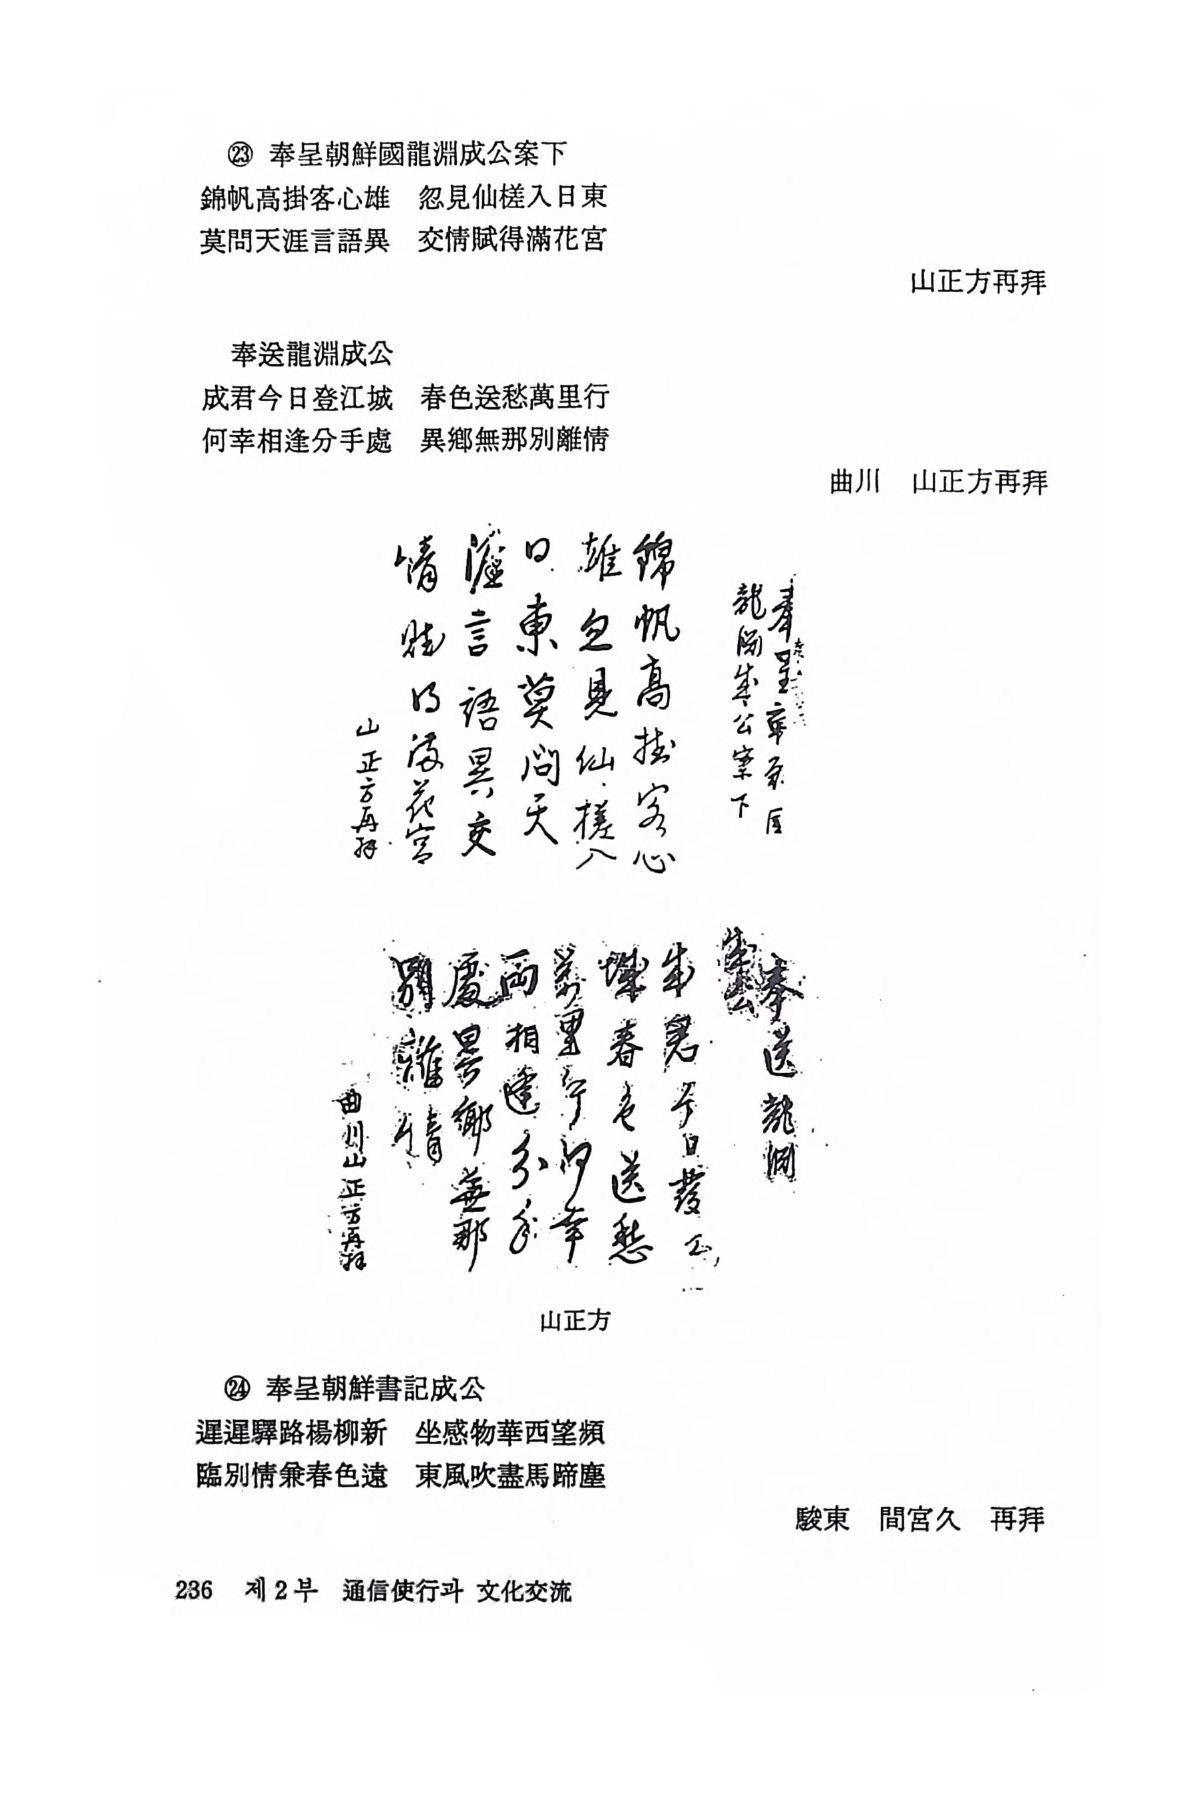 ㉓ 奉呈朝鮮國龍淵成公案下
錦帆高掛客心雄 忽見仙槎入日東
莫問天涯言語異 交情賦得滿花宮
山正方再拜
奉送龍淵成公
成君今日登江城 春色送愁萬里行
何幸相逢分手處 異鄉無那別離情
曲川 山正方再拜
奉呈
龍淵成公案下
錦帆高掛客心
雄忽見仙槎入
日東莫問天
涯言語異交
情賦得滿花宮
山正方再拜
奉送龍淵
成公
成君今日發江
城春色送愁
萬里行何幸
相逢分手
處異鄉無那
別離情
曲川山正方再拜
山正方
㉔ 奉呈朝鮮書記成公
遲遲驛路楊柳新 坐感物華西望頻
臨別情兼春色遠 東風吹盡馬蹄塵
駿東 間宮久 再拜
236 제2부 通信使行과 文化交流